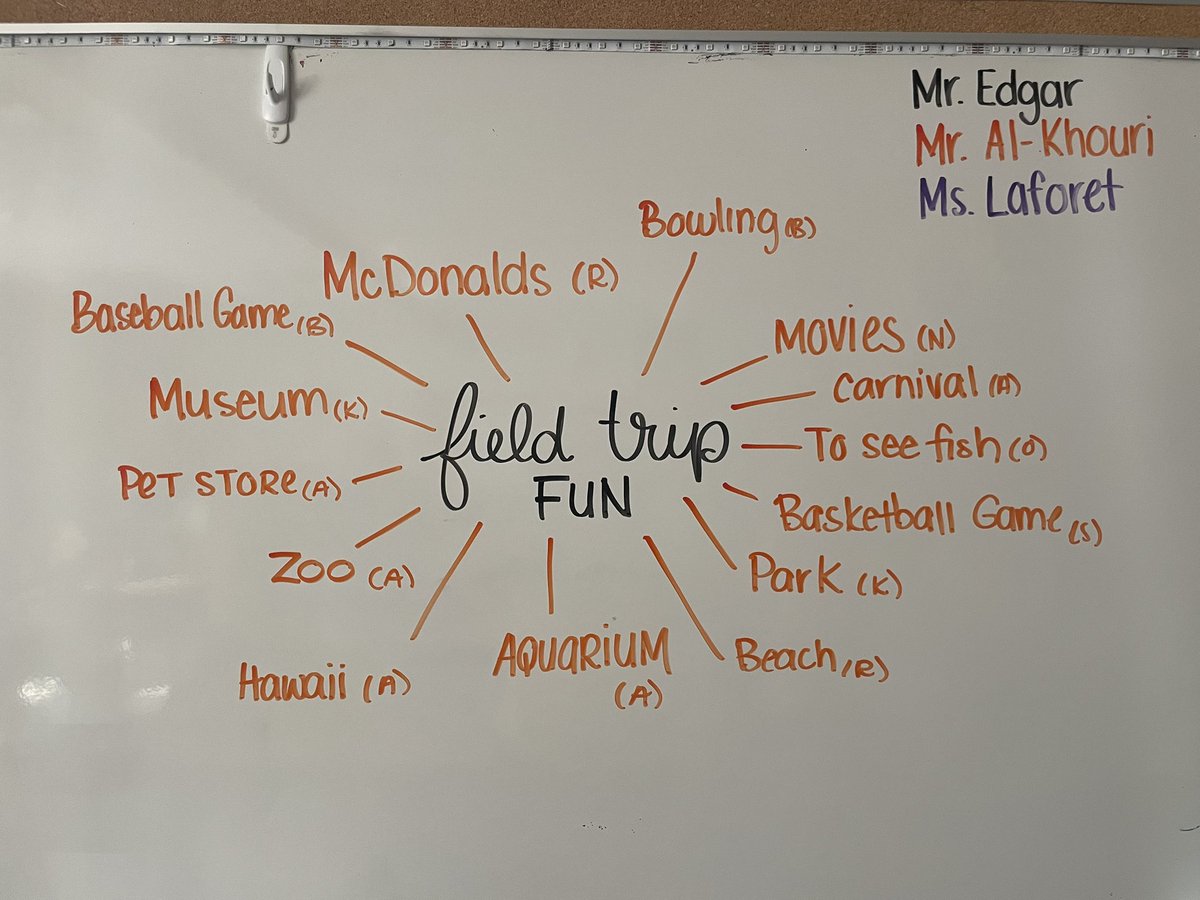 Mr. Edgar
Mr. Al-Khouri
Ms. Laforet
Bowling (B)
McDonalds (R)
Baseball Game (B)
Movies (N)
Museum (K)
carnival (A)
field trip
FUN
To see fish (O)
Pet store (A)
Basketball Game (S)
Zoo (A)
Park (K)
Hawaii (A)
AQUARiUM
(A)
Beach (R)